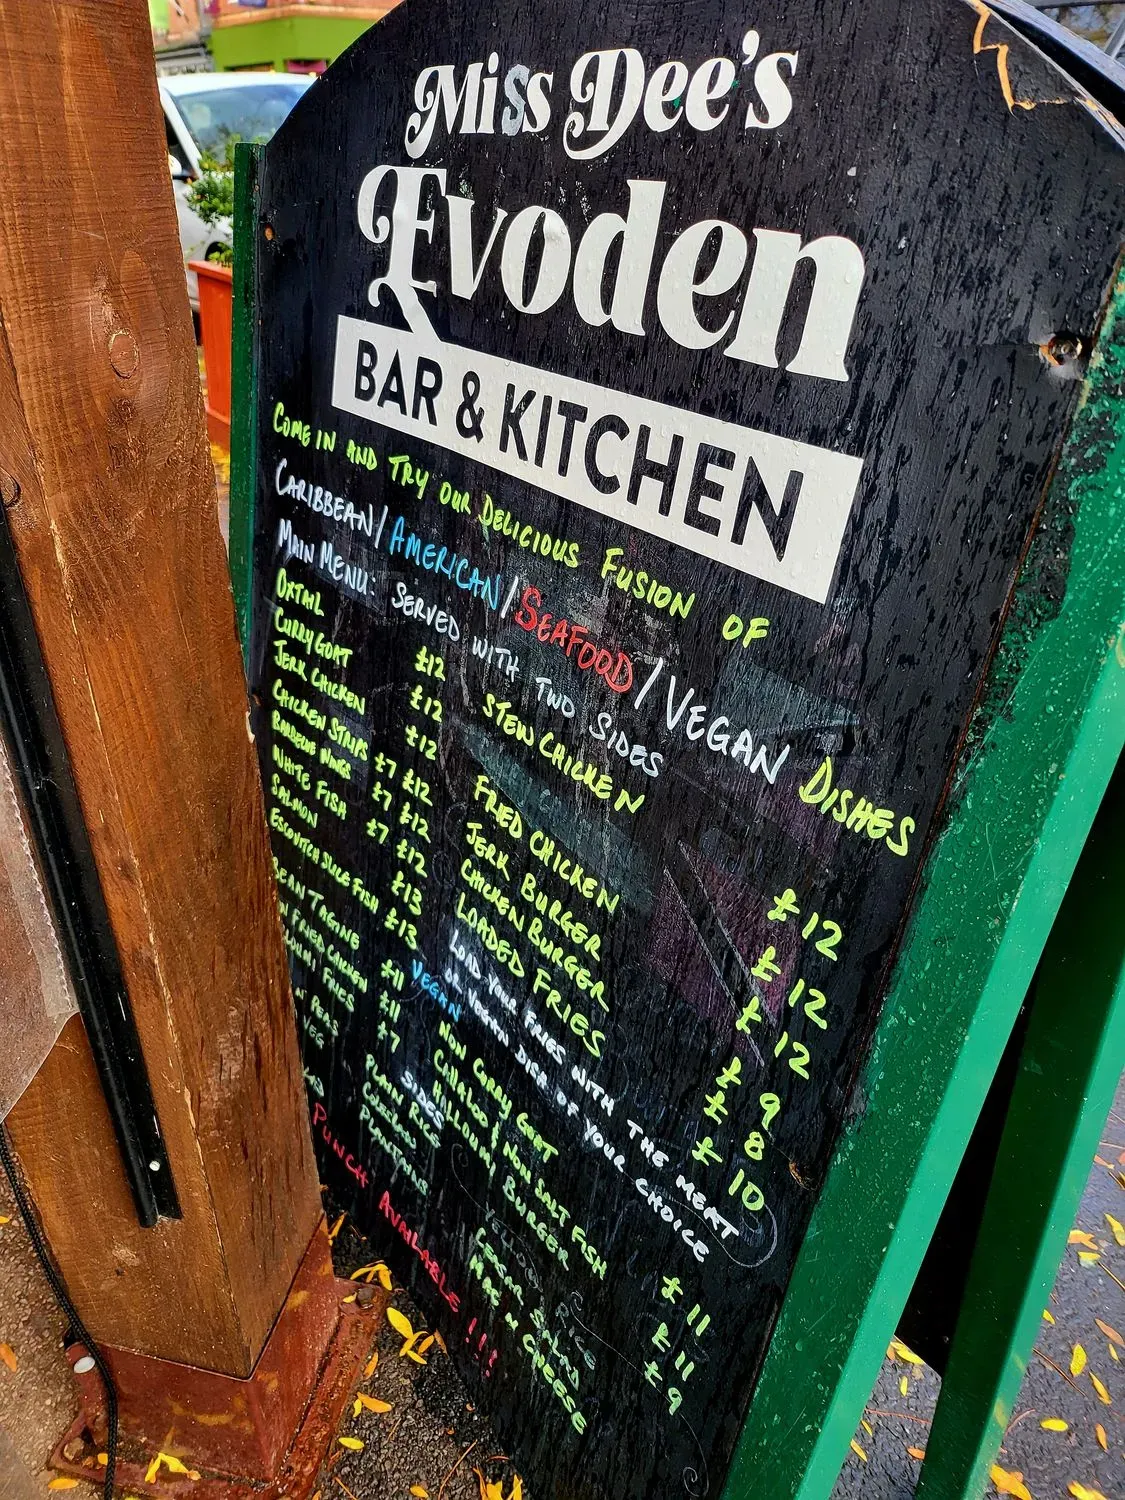 Miss Dee's
Evoden
BAR & KITCHEN
COME IN AND TRY OUR DELICIOUS FUSION OF
CARIBBEAN/AMERICAN/SEAFOOD/VEGAN DISHES
MAIN MENU: SERVED WITH TWO SIDES
OXTAIL £12
CURRY GOAT £12
JERK CHICKEN £12
CHICKEN STRIPS £7 £12
BARBECUE WINGS £7 £12
WHITE FISH £7 £12
SALMON £13
ESCOVITCH SLICE FISH £13
STEW CHICKEN £12
FRIED CHICKEN £12
JERK BURGER £12
CHICKEN BURGER £9
LOADED FRIES £8
£10
LOAD YOUR FRIES WITH THE MEAT
OR VEGAN DISH OF YOUR CHOICE
VEGAN
BEAN TAGINE £11
FRIED CHICKEN £11
FRIES £7
NON CURRY GOAT £11
CALLALOO & NON SALT FISH £11
HALLOUMI BURGER £9
SIDES
PEAS
VEG
PLAIN RICE
COLESLAW
PLANTAINS
RICE
CAESAR SALAD
MAC N CHEESE
PUNCH AVAILABLE !!!